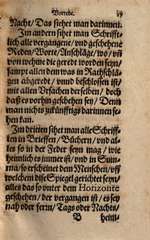 Vorrede. 
Nacht/ Das siehet man darinnen.
Im andern sihet man Schrifft-
lich alle vergangene/ und geschehene
Reden/Worte/Anschläg/wo/ und von
wem wehme die geredt worden seyn/
sampt allen dem was in Rathschlä-
gen abgeredt/ unnd beschlossen ist/
mit allen Ursachen derselben/ doch
daß es vorhin geschehen sey/ Denn
man nichts zukünfftigs darinnen se-
hen kan.
Im dritten sihet man alle Schriff-
ten in Brieffen/ Büchern/ und al-
les so in der Feder seyn mag/ wie
heimlich es immer ist/ und in Sum-
ma/ so erscheinet dem Menschen/ uff
welchem der Spiegel gerichtet seyn/
alles das so unter dem Horizonte
geschehen/ der vergangen ist/ es sey
nah oder fern/ Tags oder Nachts/
B heim-